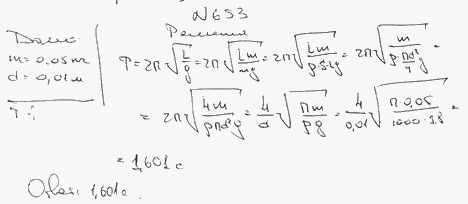 N653
Решение
Дано:
m = 0,05 кг
d = 0,01 м
T = 2π√(L/g) = 2π√(Lm/mg) = 2π√(Lm/ρ·S·Lg) = 2π√(m/(ρ·(πd²/4)g)) =
T:
= 2π√(4m/ρπd²g) = 4/d √(πm/ρg) = 4/0,01 √(π·0,05/1000·9.8) =
= 1,601 с
Ответ: 1,601 с.